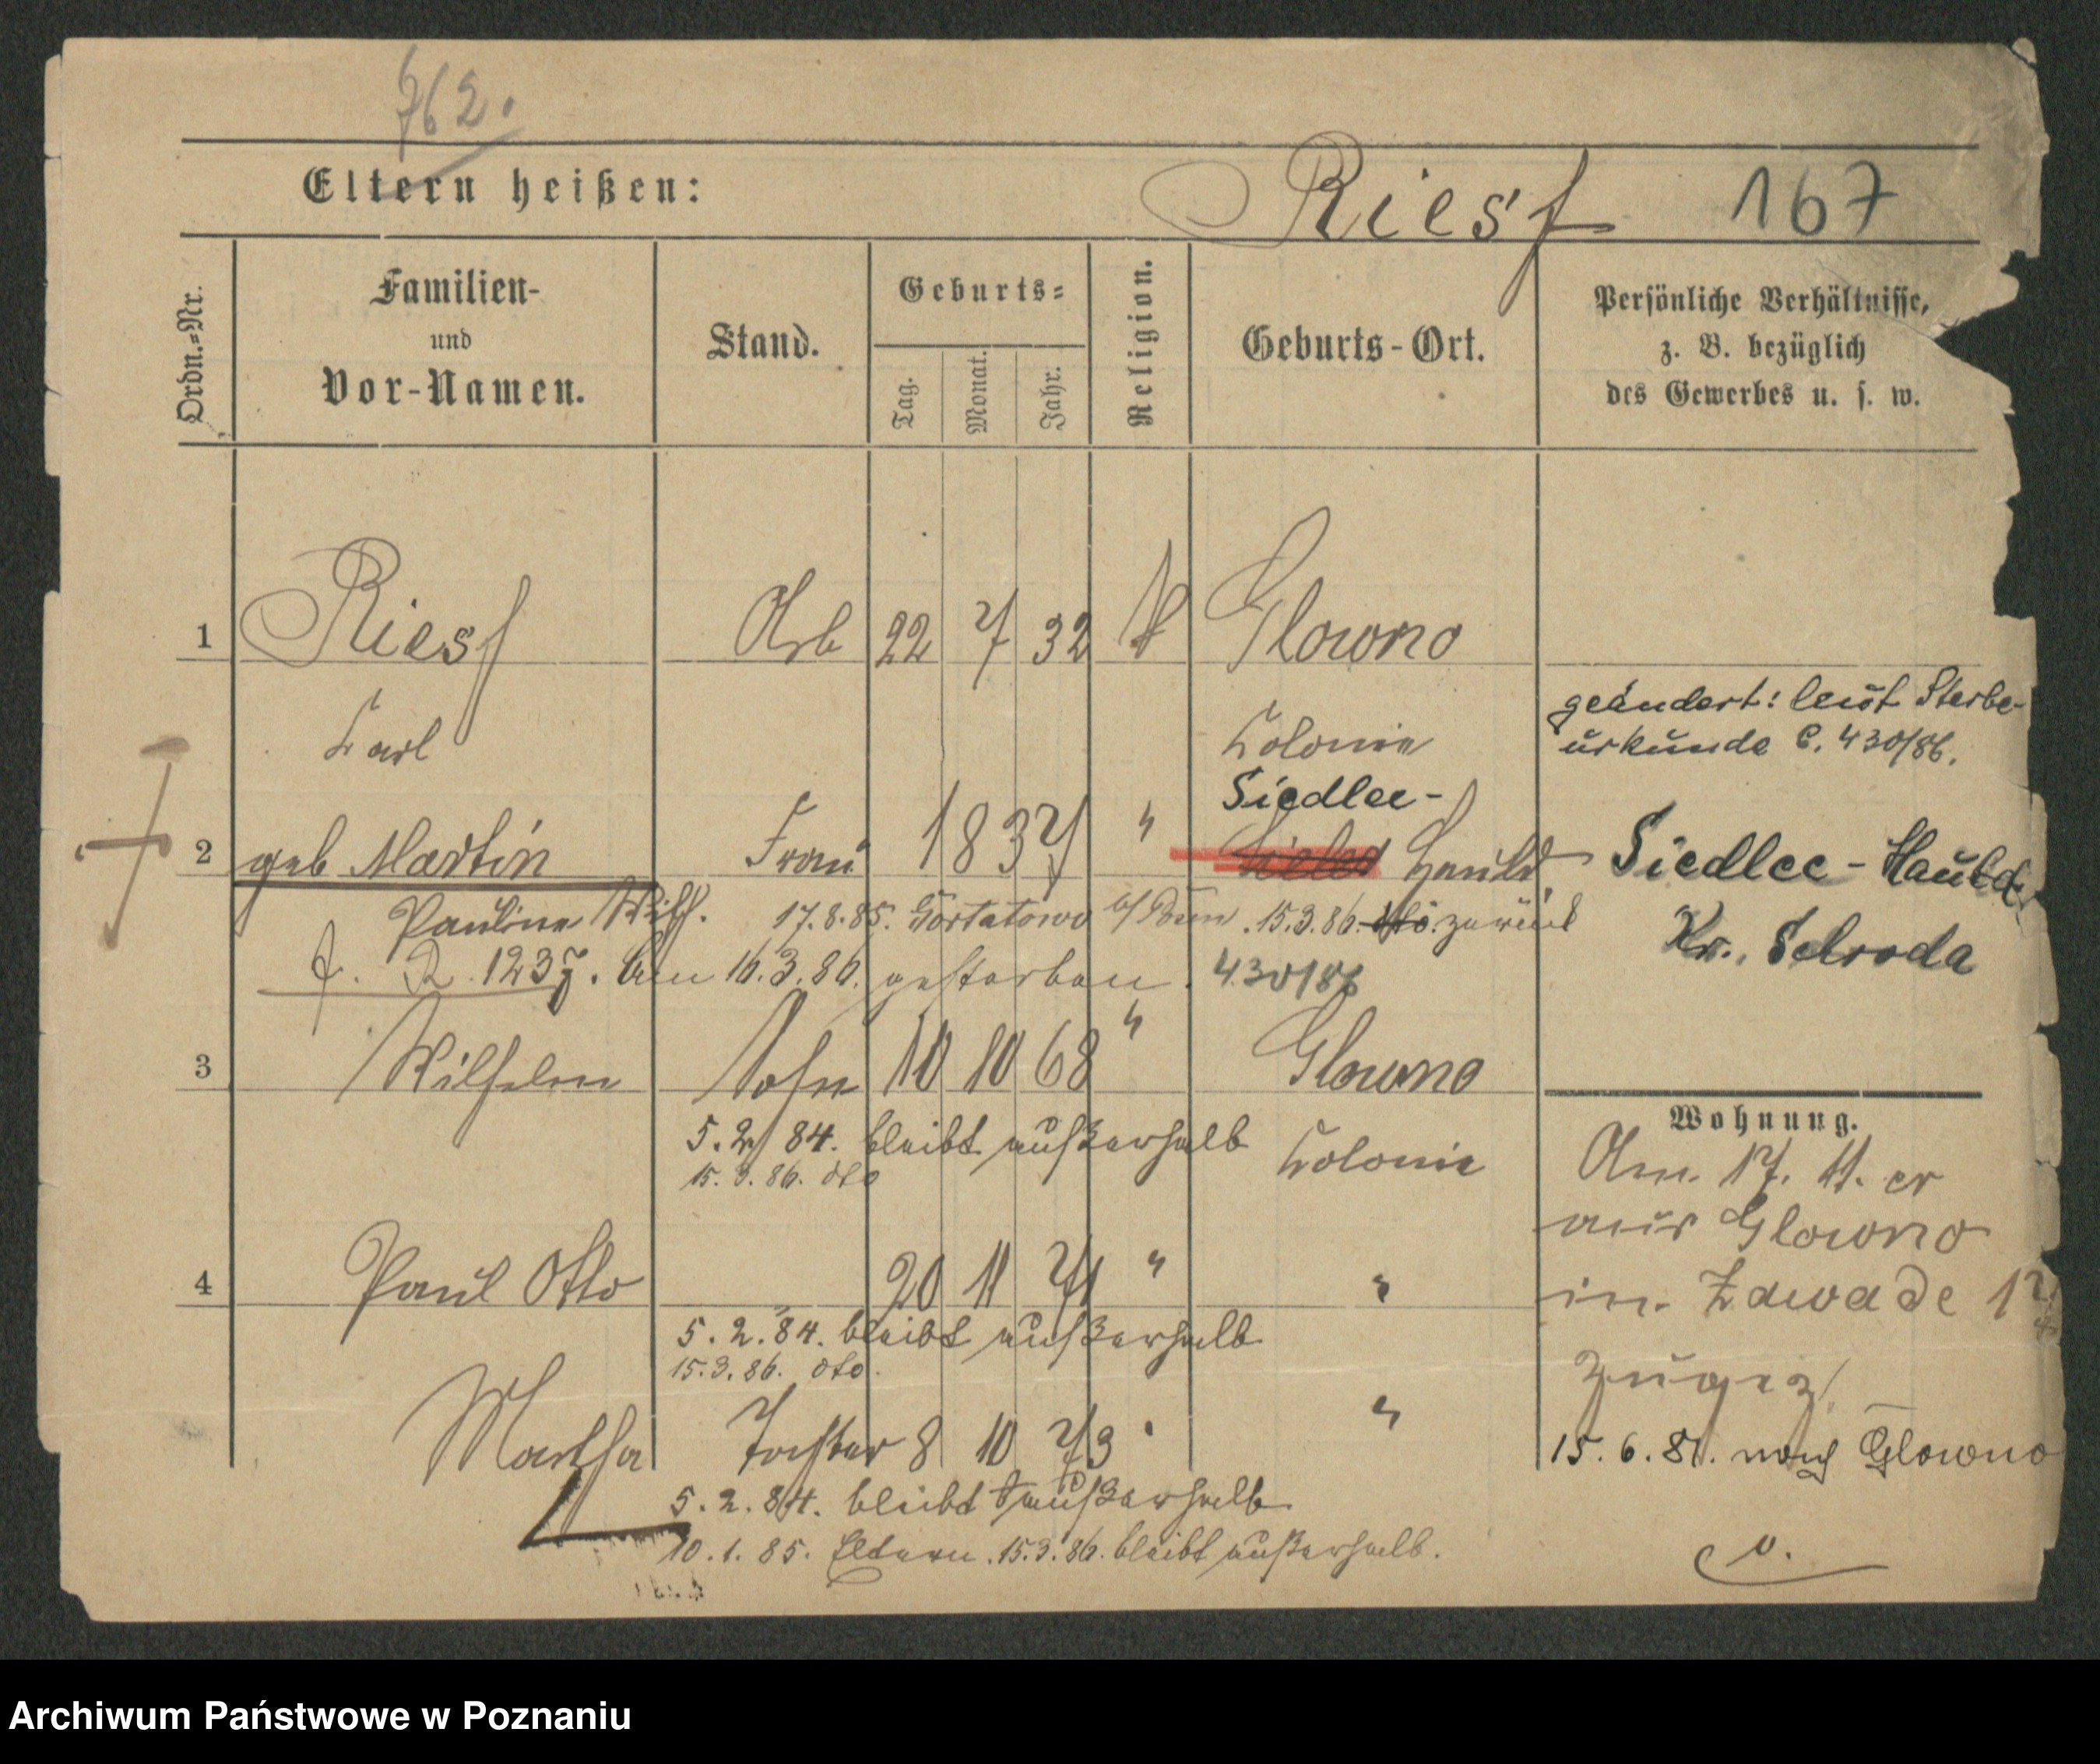 762.
Eltern heißen:
Riess 167
Ordn.=Nr.
Familien-
und
Vor-Namen.
Stand.
Geburts=
Tag.
Monat.
Jahr.
Religion.
Geburts-Ort.
Persönliche Verhältnisse,
z. B. bezüglich
des Gewerbes u. s. w.
1 Riess Arb 22 7 32 Glowno
Carl Colonie
geändert: laut Sterbe-
urkunde C. 430/86.
Siedlec-
2 geb Martin Frau 1837 " Hauld.
Siedlec-Hauld.
Kr. Schroda
Pauline 17.8.85. Gortatowo 15.3.86. dto. zurück
R. 1237. Am 16.3.86. gestorben. 430/86
3 Wilhelm Sohn 10 10 68 " Glowno
5.2. 84. bleibt außerhalb Colonie
15.3.86. dto
Wohnung.
Am 17. 11. cr
aus Glowno
in Zawade
zugez.
15.6.81. nach Glowno
4 Paul Otto 20 11 71 " "
5.2.84. bleibt außerhalb
15.3.86. dto.
Martha Tochter 8 10 73 " "
5.2.84. bleibt außerhalb
10.1.85. Eltern. 15.3.86. bleibt außerhalb.
v.
Archiwum Państwowe w Poznaniu